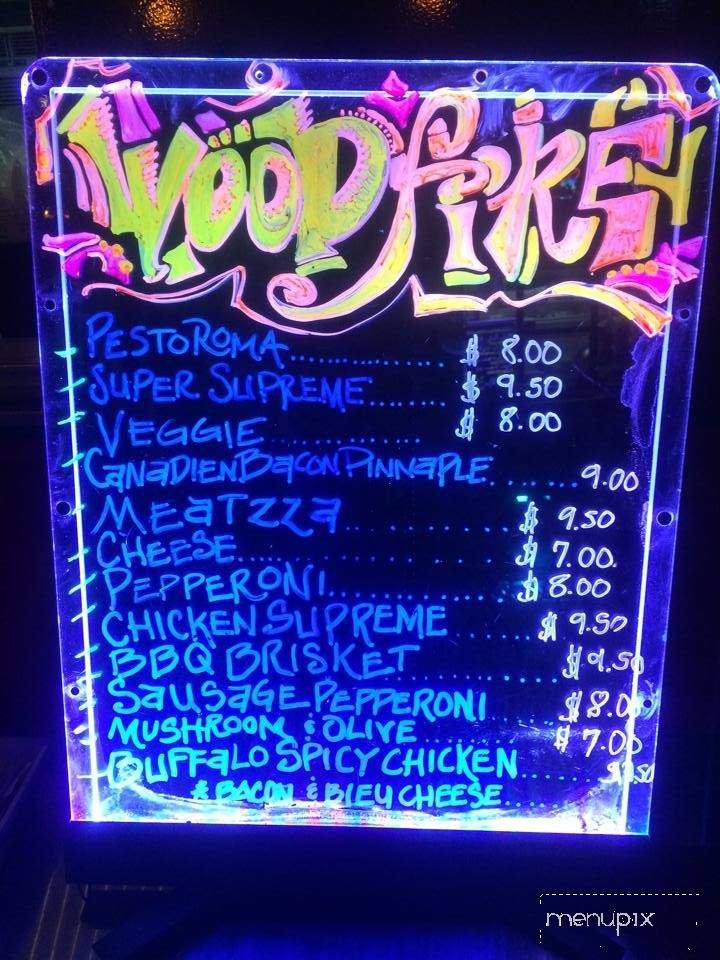 WOOD FiRE
PESTO ROMA.................. $ 8.00
SUPER SUPREME....... $ 9.50
VEGGIE............... $ 8.00
CANADIEN BACON PINNAPLE........ 9.00
MEATZZA................ $ 9.50
CHEESE..................... $ 7.00.
PEPPERONI................ $ 8.00
CHICKEN SUPREME ....... $ 9.50
BBQ BRISKET ............ $ 9.50
SAUSAGE PEPPERONI ....... $ 8.00
MUSHROOM & OLIVE ........... $ 7.00
BUFFALO SPICY CHICKEN........
& BACON & BLEU CHEESE.......
menupix